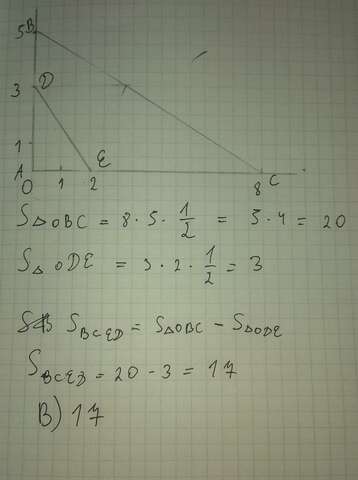 5 B
3 D
1
A E
0 1 2 8 C
S△OBC = 8 · 5 · 1/2 = 5 · 4 = 20
S△ODE = 3 · 2 · 1/2 = 3
S BCED = S△OBC - S△ODE
S BCED = 20 - 3 = 17
B) 17